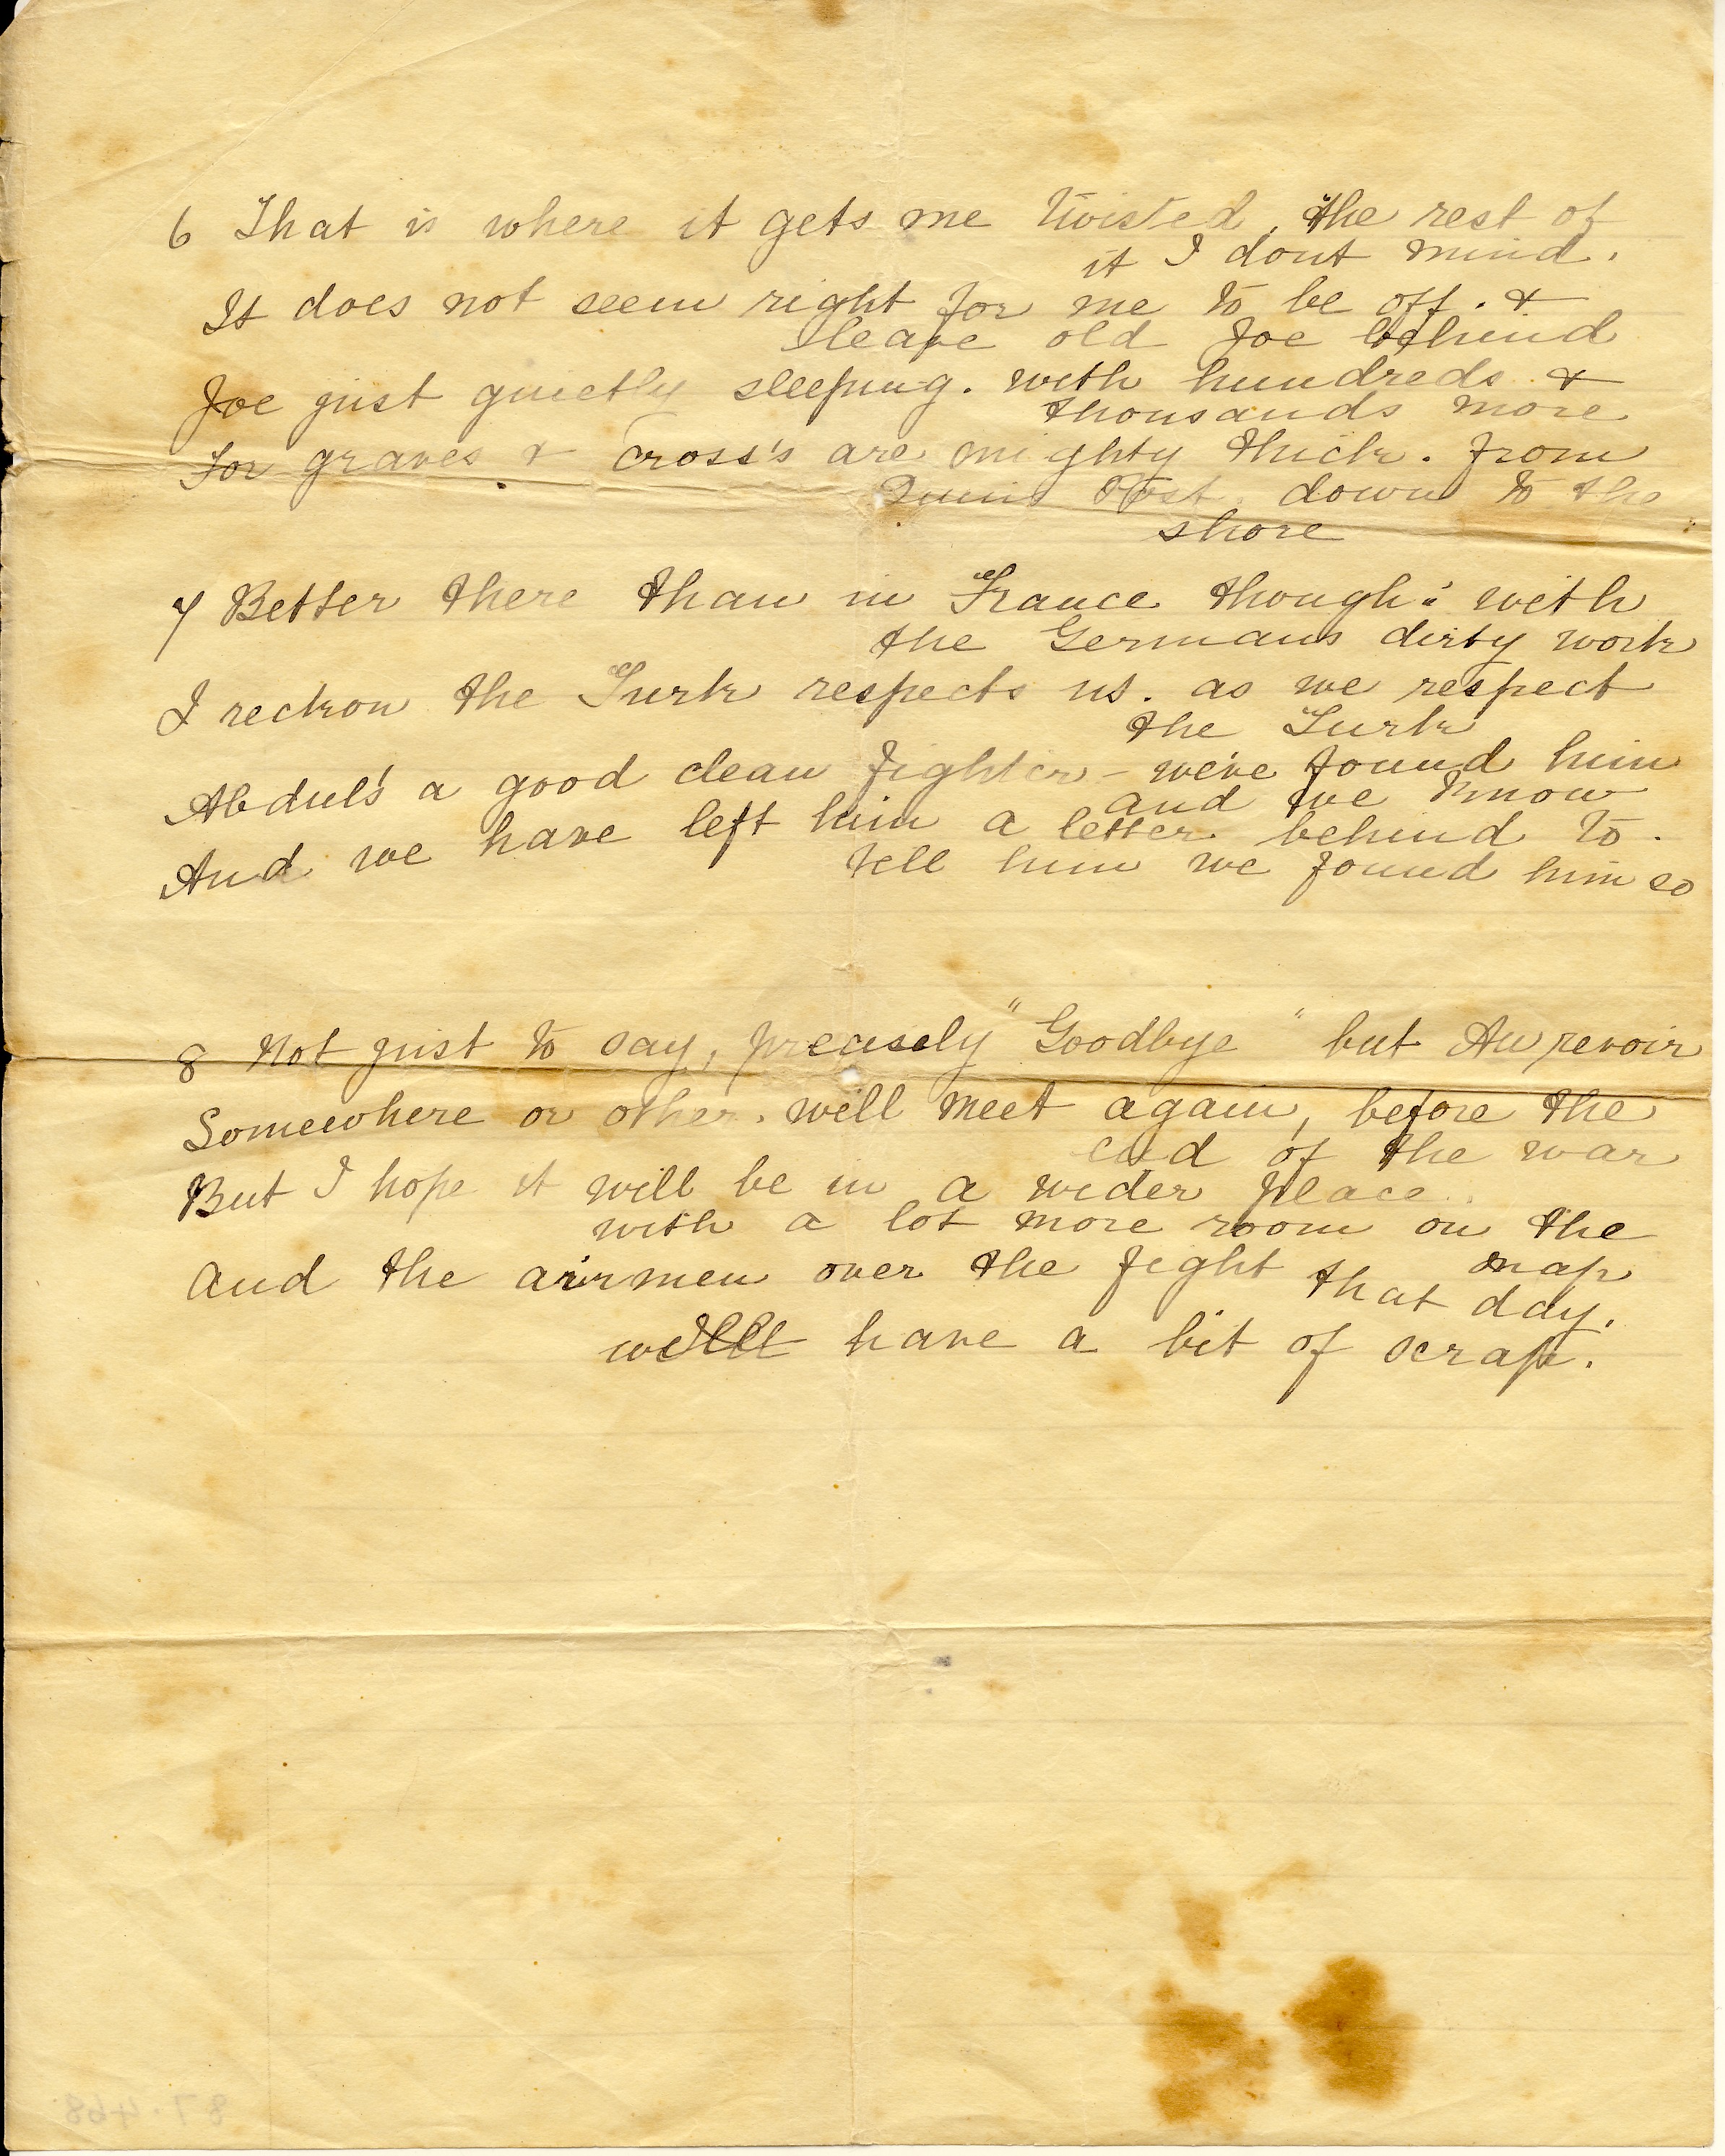 6 That is where it gets me twisted, the rest of
it I dont mind.
It does not seem right for me to be off. &
leave old Joe behind
Joe just quietly sleeping. with hundreds &
thousands more
For graves & cross's are mighty thick. from
Post down to the
shore
7 Better there than in France though: with
the Germans dirty work
I reckon the Turk respects us. as we respect
the Turk
Abdul's a good clean fighter - we've found him
and we know
And we have left him a letter behind to.
tell him we found him so
8 Not just to say, precisely "Goodbye" but Au revoir
Somewhere or other. will meet again, before the
end of the war
But I hope it will be in a wider place.
with a lot more room on the
map
And the airmen over the fight that day.
will have a bit of scrap.
87.468